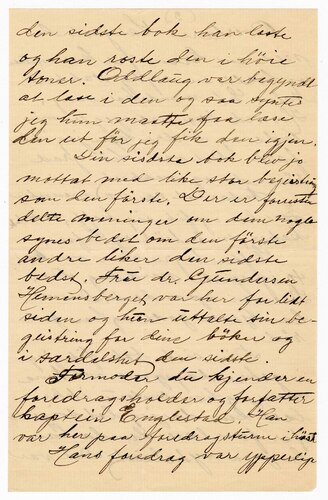 den sidste bok han læste
og han roste den i höie
toner. Oddlaug var begyndt
at læse i den og saa syntes
jeg hun maatte faa læse
den ut för jeg fik den igjen.
Din sidste bok blev jo
mottat med like stor begeistring
som den förste. Der er
delte meninger om dem nogle
synes bedst om den förste
andre liker den sidste
bedst. Fru dr. Gundersen
var her for lidt
siden og hun uttalte sin be-
geistring for dine böker og
i særdelshet den sidste.
Formoder du kjender en
foredragsholder og forfatter
kaptein Englestad. Han
var her paa foredragsturne i höst
Hans foredrag var ypperlige